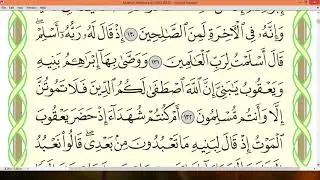 وَإِنَّهُۥ فِى ٱلْأَخِرَةِ لَمِنَ ٱلصَّٰلِحِينَ ١٣٠ إِذْ قَالَ لَهُۥ رَبُّهُۥٓ أَسْلِمْ ۖ
قَالَ أَسْلَمْتُ لِرَبِّ ٱلْعَٰلَمِينَ ١٣١ وَوَصَّىٰ بِهَآ إِبْرَٰهِـۧمُ بَنِيهِ
وَيَعْقُوبُ يَٰبَنِىَّ إِنَّ ٱللَّهَ ٱصْطَفَىٰ لَكُمُ ٱلدِّينَ فَلَا تَمُوتُنَّ
إِلَّا وَأَنتُم مُّسْلِمُونَ ١٣٢ أَمْ كُنتُمْ شُهَدَآءَ إِذْ حَضَرَ يَعْقُوبَ
ٱلْمَوْتُ إِذْ قَالَ لِبَنِيهِ مَا تَعْبُدُونَ مِنۢ بَعْدِى قَالُوا۟ نَعْبُدُ